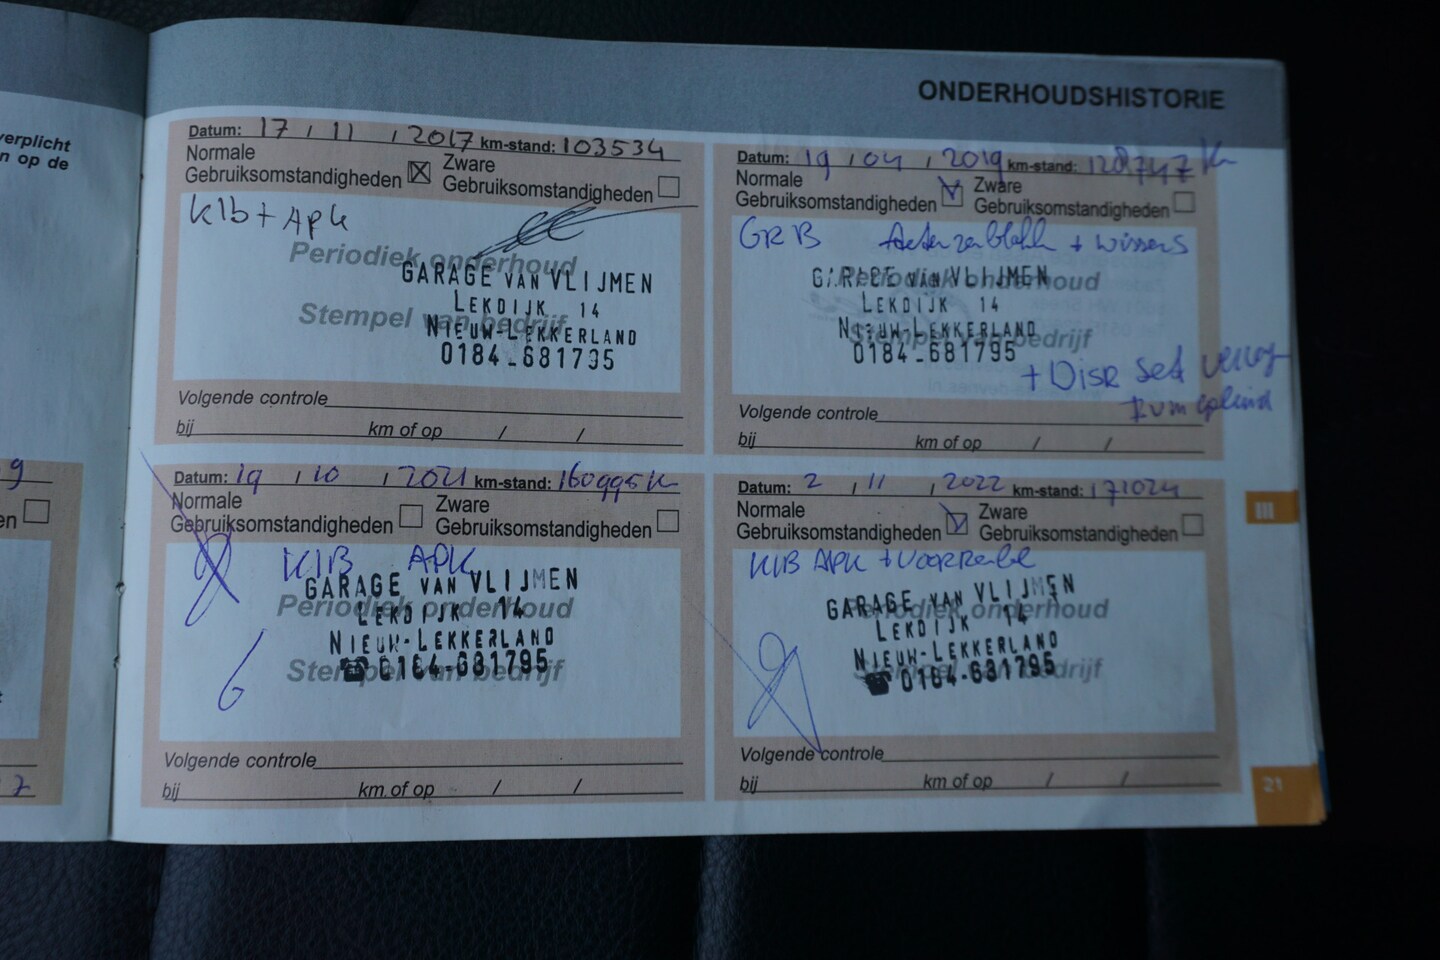 verplicht
n op de
9
en
7
ONDERHOUDSHISTORIE
Datum: 17 / 11 / 2017 km-stand: 103534
Normale Gebruiksomstandigheden
Zware Gebruiksomstandigheden
Klb + Apk
Periodiek onderhoud
GARAGE VAN VLIJMEN
LEKDIJK 14
Stempel van bedrijf
NIEUW-LEKKERLAND
0184-681795
Volgende controle
bij km of op / /
Datum: 19 / 04 / 2019 km-stand: 128747 K
Normale Gebruiksomstandigheden
Zware Gebruiksomstandigheden
GRB + wissers
GARAGE VAN VLIJMEN
Periodiek onderhoud
LEKDIJK 14
NIEUW-LEKKERLAND
Stempel van bedrijf
0184-681795
+ Disk set
Volgende controle
bij km of op / /
Datum: 19 / 10 / 2021 km-stand: 160995 K
Normale Gebruiksomstandigheden
Zware Gebruiksomstandigheden
KlB APK
GARAGE VAN VLIJMEN
Periodiek onderhoud
LEKDIJK 14
NIEUW-LEKKERLAND
Stempel van bedrijf
☎ 0184-681795
Volgende controle
bij km of op / /
Datum: 2 / 11 / 2022 km-stand: 171024
Normale Gebruiksomstandigheden
Zware Gebruiksomstandigheden
KlB APK +
GARAGE VAN VLIJMEN
Periodiek onderhoud
LEKDIJK 14
NIEUW-LEKKERLAND
Stempel van bedrijf
☎ 0184-681795
Volgende controle
bij km of op / /
III
21